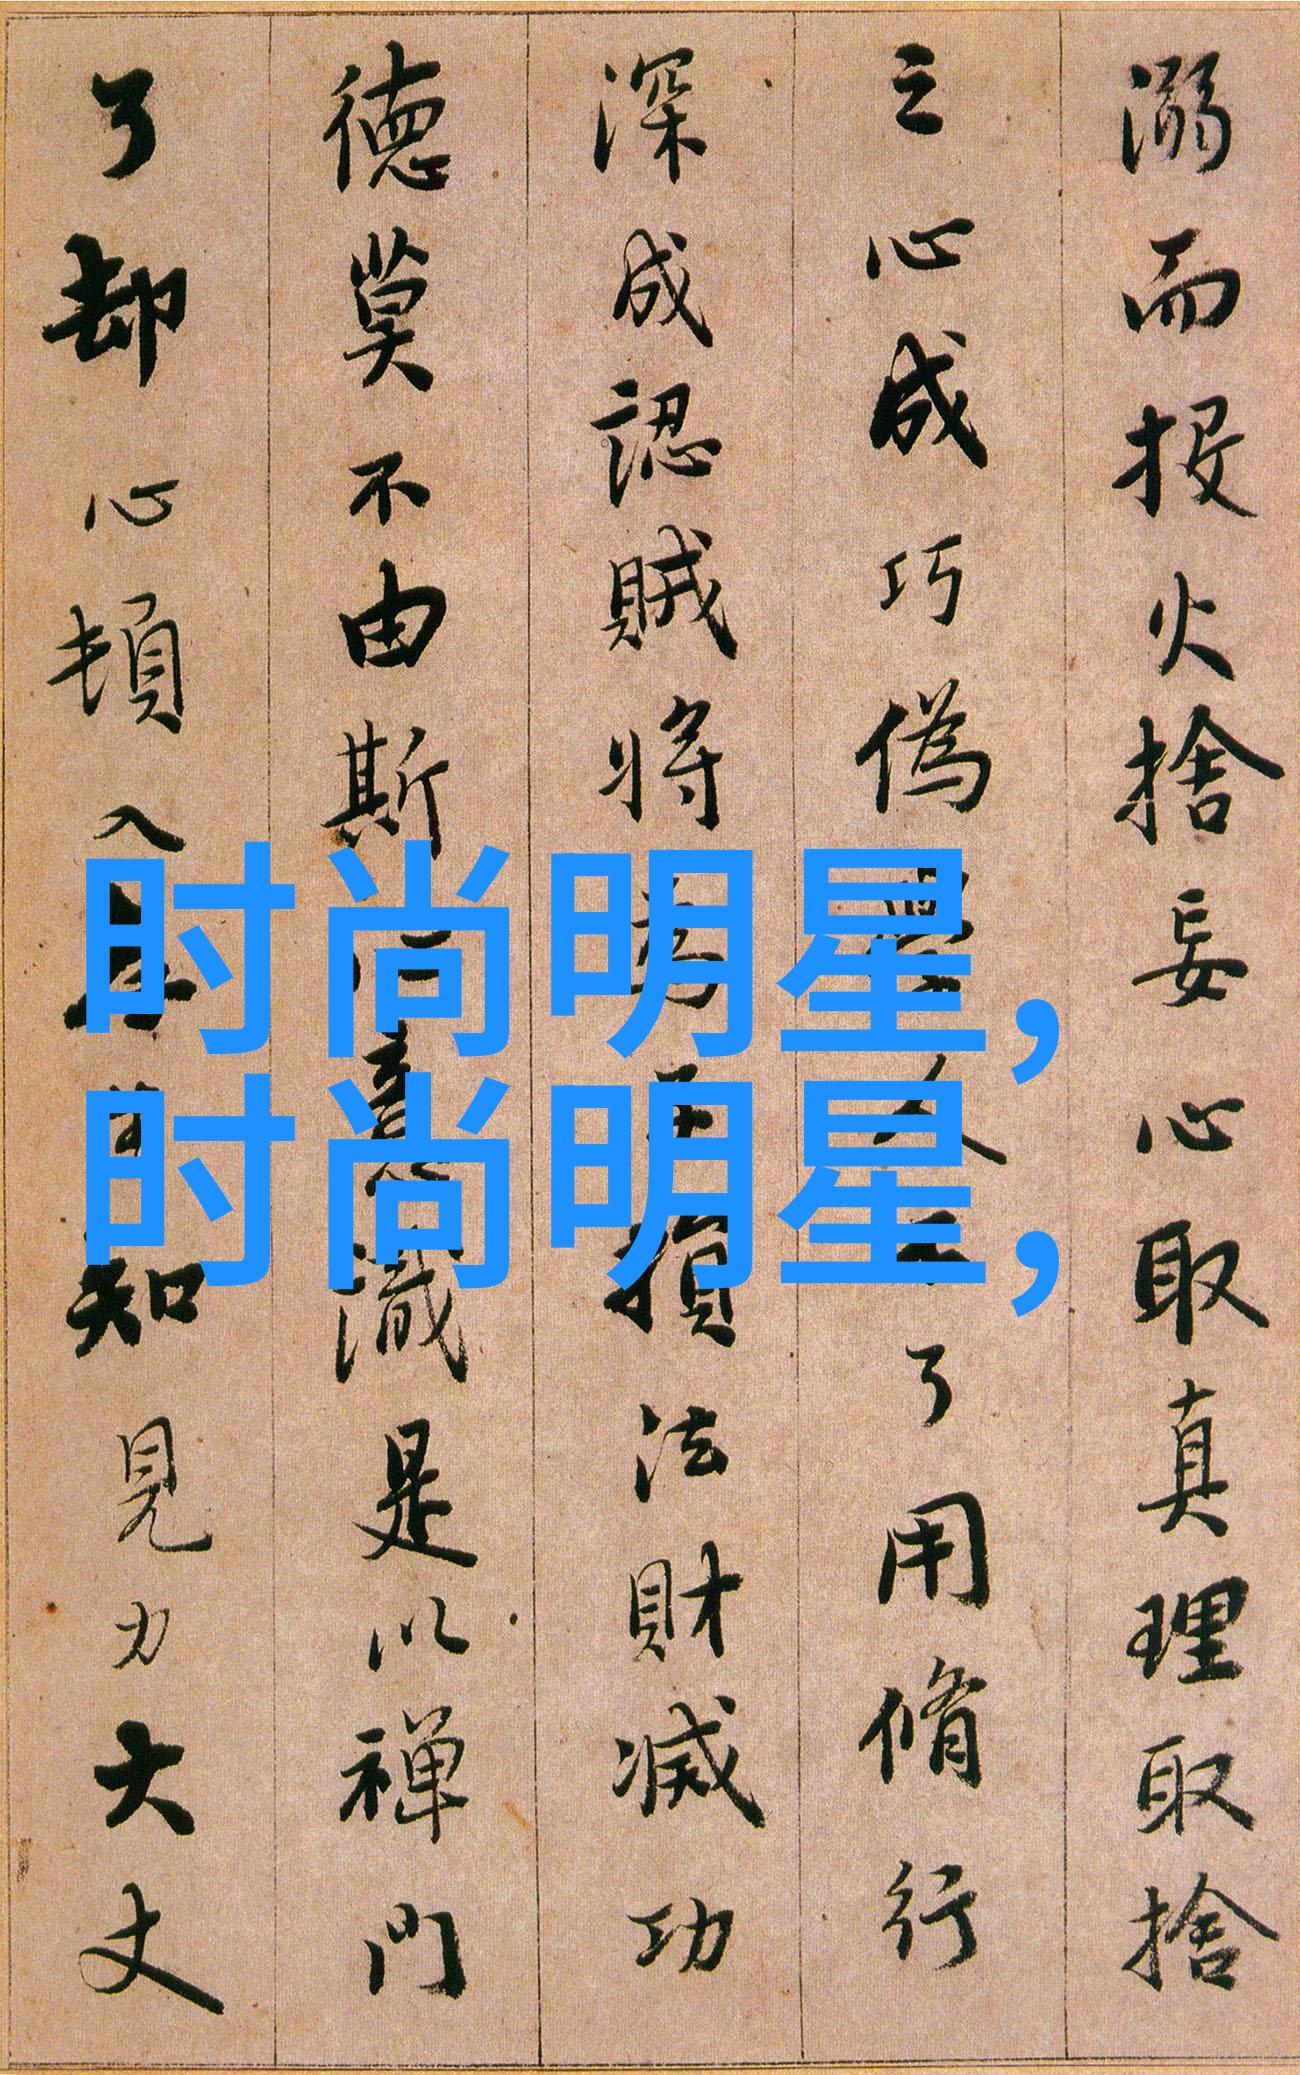 溺而投火捨妄心取真理取捨
之心成巧偽學人不了用脩行
深成認賊將為子損法財滅功
德莫不由斯心意識是以禪門
了却心頓入無生知見力大丈
时尚明星,
时尚明星,